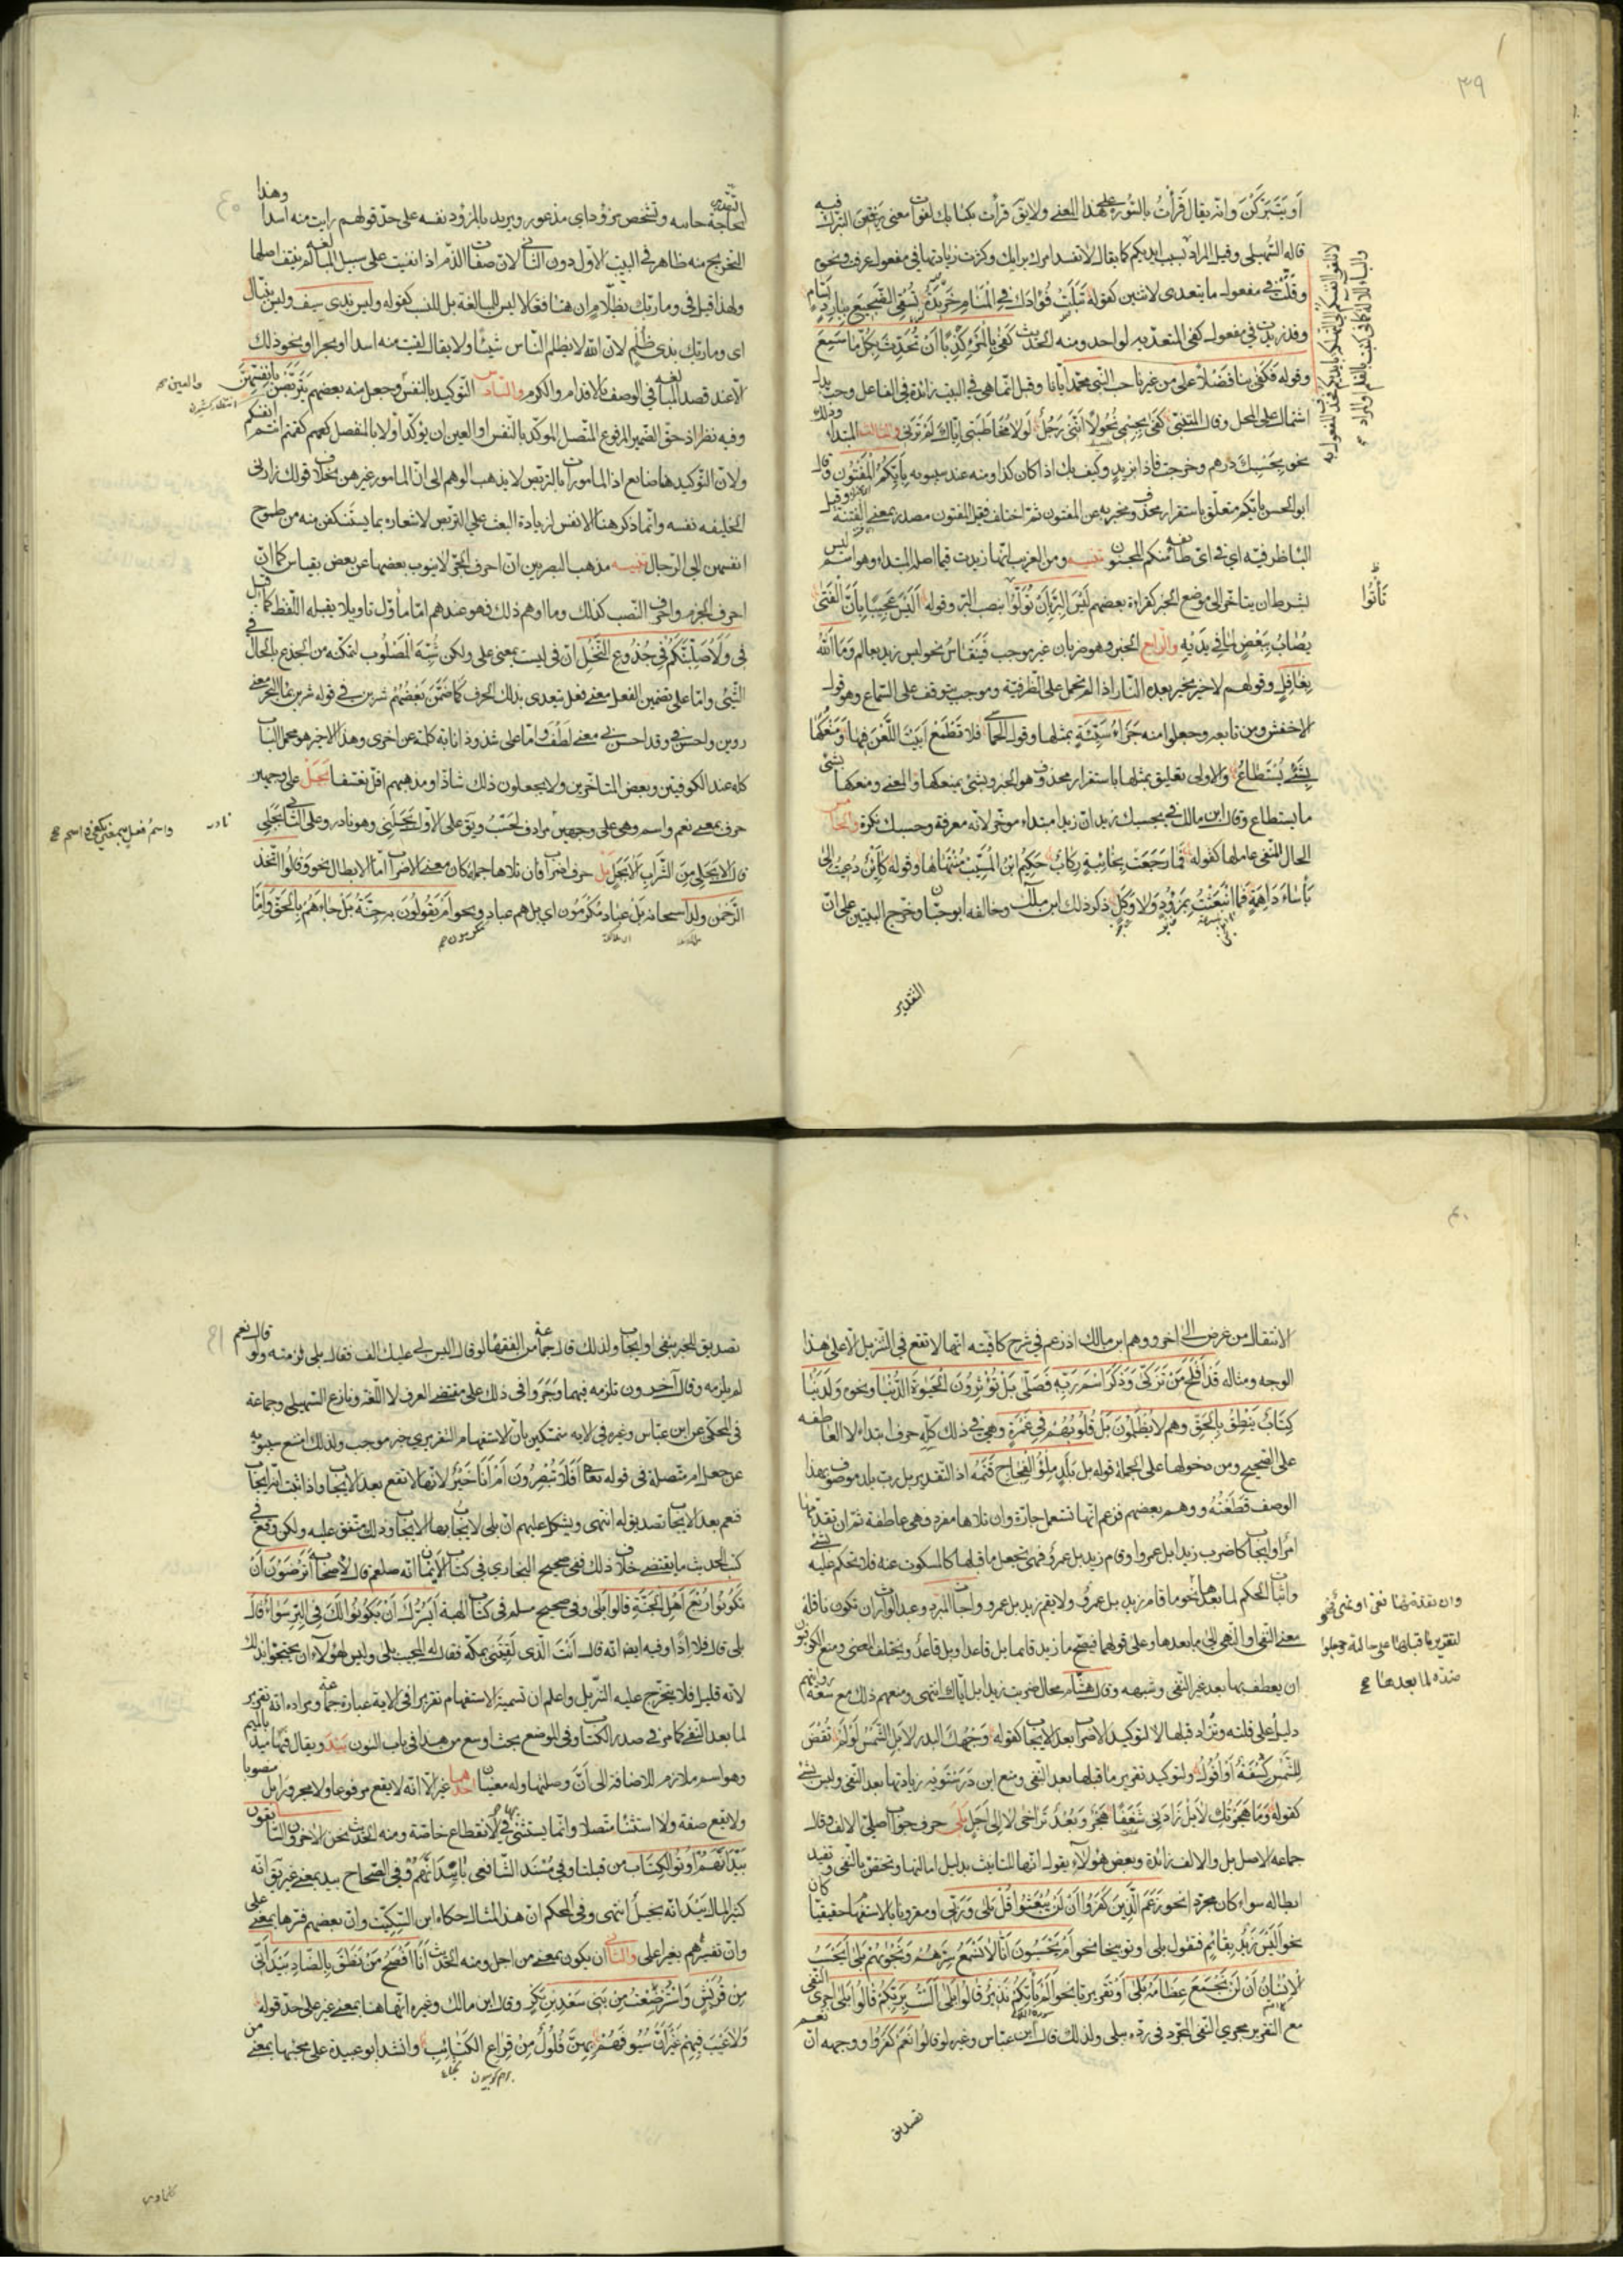 ٣٩
او يتبركن وانه يقال قَرَأْتُ بالسّورة على هذا المعنى ولا يقال قرأت بكتابك لفوات معنى التبرك فيه
قاله السّهيلى وقيل المراد بسبب ايديكم كما يقال لا تفسد امرك برايك وكثرت زيادتها فى مفعول عرفت ونحوه
وقلّت فى مفعول ما يتعدى لاثنين كقوله تَبَلَتْ فُؤادَكَ فِي الْمَنامِ خَرِيدَةٌ تَسْقِي الضَّجِيعَ بِبارِدٍ بَسّامٍ
وقد زيدت فى مفعول كفى المتعدّية لواحد ومنه الحديث كَفَى بِالْمَرْءِ كَذِبًا اَنْ يُحَدِّثَ بِكُلِّ ما سَمِعَ
وقوله فَكَفَى بنا فَضْلاً على من غيرنا حب النّبى محمّد ايّانا وقيل انّما هى فى البيت زائدة فى الفاعل وحب بدل
اشتمال على المحل وقال المتنبّى كَفَى بِجِسْمِي نُحُولاً اَنَّنِي رَجُلٌ لَوْلا مُخاطَبَتِي اِيّاكَ لَمْ تَرَنِي والثالث المبتدا وذلك
نحو بِحَسْبِكَ درهم وخرجت فاذا بزيدٍ وكَيْفَ بك اذا كان كذا ومنه عند سيبويه بِاَيِّكُمُ الْمَفْتُونُ وقال
ابو الحسن بايكم متعلّق باستقرار محذوف مخبر به عن المفتون ثمّ اختلف فقيل المفتون مصدر بمعنى الفتنة وقيل
البا ظرفيّة اى فى اىّ طائفة منكم المجنون تنبيه ومن الغريب انّها زيدت فيما اصله المبتداء وهو اسم ليس
بشرط ان يتاخّر الى موضع الخبر كقراءة بعضهم لَيْسَ الْبِرَّ بِاَنْ تُوَلُّوا بنصب البرّ وقوله اَلَيْسَ عَجِيبًا بِاَنَّ الْفَتَى
يُصابُ بِبَعْضِ الَّذِي فِي يَدَيْهِ والرّابع الخبر وهو ضربان غير موجب فَيَنْقاسُ نحو ليس زيد بعالم وَمَا اللّهُ
بِغافِلٍ وقولهم لا خير بخير بعده النّار اذا لم تحمل على الظرفيّة وموجب يتوقف على السّماع وهو قول
الاخفش ومن تابعه وجعلوا منه جَزاءُ سَيِّئَةٍ بمثلها وقول الحماسى فلا تَطْمَعْ اَبَيْتَ اللَّعْنَ فِيها وَمَنْعُكَها
بِشَيْءٍ يُسْتَطاعُ والاولى تعليق بمثلها باستقرار محذوف هو الخبر وبشىء بمنعكها والمعنى ومنعكها بشىء
ما يستطاع وقال ابن مالك فى بحسبك زيد ان زيدا مبتداء مؤخر لانه معرفة وحسبك نكرة والخامس
الحال المنفى عاملها كقوله فَما رَجَعَتْ بِخائِبَةٍ رِكابٌ حَكِيمُ بْنُ الْمُسَيَّبِ مُنْتَهاها وقوله كائِنْ دُعِيتُ الى
بَأْساءَ داهِمَةٍ فَما انْبَعَثْتُ بِمَزْؤُودٍ وَلا وَكَلٍ ذكر ذلك ابن مالك وخالفه ابو حيّان وخرّج البيتين على انّ
التقدير
تَأْتُوا
التقدير بحاجة خائبة وبشخص مزؤد اى مذعور ويريد بالمزؤد نفسه على حدّ قولهم رايت منه اسدا وهذا
التخريج منه ظاهر فى البيت الاوّل دون الثّانى لان صفات الذّم اذا نفيت على سبيل المبالغة لم ينتف اصلها
ولهذا قيل فى وما ربّك بظلّام ان هنا فعّالا ليس للمبالغة بل للنسب كقوله وليس بذى سيف وليس بنبّال
اى وما ربّك بذى ظُلْمٍ لان اللّه لا يظلم النّاس شيئًا ولا يقال لقيت منه اسدا او بحرا او نحو ذلك
الّا عند قصد المبالغة فى الوصف بالاقدام والكرم والسّادس التّوكيد بالنفس وجعل منه بعضهم يَتَرَبَّصْنَ بِاَنْفُسِهِنَّ
وفيه نظر اذ حقّ الضمير المرفوع المتّصل المؤكّد بالنّفس او العين ان يؤكّد اولا بالمنفصل كقمتم انتم انفسكم
ولانّ التّوكيد هنا ضايع اذ المامورات بالتربّص لا يذهب الوهم الى انّ المامور غيرهن بخلاف قولك زارنى
الخليفه نفسه وانّما ذكر هنا الانفس لزيادة البعث على التربّص لاشعاره بما يستنكفن منه من طموح
انفسهن الى الرّجال تنبيه مذهب البصريين انّ احرف الجرّ لا ينوب بعضها عن بعض بقياس كما انّ
احرف الجزم واحرف النّصب كذلك وما اوهم ذلك فهو عندهم امّا مأوّل تاويلا يقبله اللّفظ كما قيل
فى وَلَاُصَلِّبَنَّكُمْ فِي جُذُوعِ النَّخْلِ انّ فى ليست بمعنى على ولكن شُبِّهَ الْمَصْلُوب لتمكّنه من الجذع بالحال فى
الشّىء وامّا على تضمين الفعل معنى فعل يتعدى بذلك الحرف كَما ضَمَّنَ بَعْضُهُمْ شربن فى قوله شربن بماء البحر معنى
روين واحسن فى وقد احسن بى معنى لَطُفَ وامّا على شذوذ انابة كلمة عن اخرى وهذا الاخير هو محمل الباب
كله عند الكوفيّين وبعض المتاخّرين ولا يجعلون ذلك شاذّا ومذهبهم اقلّ تعسّفا بَجَلْ على وجهين
حرف بمعنى نعم واسم وهى على وجهين مرادف لحَسْبُ ويقال على الاوّل بَجَلْنِي وهو نادر وعلى الثّانى بَجَلِي
قال اَلا بَجَلِي مِنَ الشَّرابِ اَلا بَجَلْ بَلْ حرف اضراب فان تلاها جملة كان معنى الاضراب امّا الابطال نحو وَقالُوا اتَّخَذَ
الرَّحْمٰنُ وَلَدًا سبحانه بَلْ عِبادٌ مُكْرَمُونَ اى بل هم عباد ونحو اَمْ يَقُولُونَ بِهِ جِنَّةٌ بَلْ جاءَهُمْ بِالْحَقِّ وَاِمّا
نادر
واسمُ فعلٍ بمعنى يكفى واسم
٤٠
الانتقال من غرض الى اخر ووهم ابن مالك اذ زعم فى شرح كافيته انّها لا تقع فى التّنزيل الّا على هذا
الوجه ومثاله قَدْ اَفْلَحَ مَنْ تَزَكَّى وَذَكَرَ اسْمَ رَبِّهِ فَصَلَّى بَلْ تُؤْثِرُونَ الْحَيٰوةَ الدُّنْيا ونحو وَلَدَيْنا
كِتابٌ يَنْطِقُ بِالْحَقِّ وهم لا يُظْلَمُونَ بَلْ قُلُوبُهُمْ فِي غَمْرَةٍ وهى فى ذلك كلّه حرف ابتداء لا العاطفه
على الصّحيح ومن دخولها على الجملة قوله بل بَلَدٍ مِلْؤُ الْفِجاجِ قَتَمُهْ اذ التقدير بل ربّ بلد موصوف بهذا
الوصف قَطَعْتُهُ ووهم بعضهم فزعم انّها تستعمل جارّة وان تلاها مفرد فهى عاطفة ثمّ ان تقدّمها
امر او ايجاب كاضرب زيدا بل عمروا وقام زيد بل عمرو فهى تجعل ما قبلها كالمسكوت عنه فلا يحكم عليه بشىء
واثبات الحكم لما بعدها نحو ما قام زيد بل عمرو ولا يقم زيد بل عمرو واجاز المبرد وعبد الوارث ان تكون ناقلة
معنى النّفى والنّهى الى ما بعدها وعلى قولهما فيصحّ ما زيد قائما بل قاعدا وبل قاعدٌ ويختلف المعنى ومنع الكوفيّون
ان يعطف بها بعد غير النّفى وشبهه وقال هشام محال ضربت زيدا بل ايّاك انتهى ومنعهم ذلك مع سعة روايتهم
دليل على قلته وتُزاد قبلها لا لتوكيد الاضراب بعد الايجاب كقوله وَجْهُكَ البدر لا بَلِ الشَّمْسُ لَوْ لَمْ تُقْضَ
لِلشَّمْسِ كَسْفَةٌ اَوْ اُفُولُ ولتوكيد تقرير ما قبلها بعد النّفى ومنع ابن دَرَسْتَوَيْه زيادتها بعد النّفى وليس بشىء
كقوله وَما هَجَرْتُكِ لا بَلْ زادَنِي شَغَفًا هَجْرٌ وَبُعْدٌ تَراخَى لا اِلى اَجَلِ بَلَى حرف جواب اصلىّ الالف وقال
جماعة الاصل بل والالف زائدة وبعض هؤلاء يقول انّها للتانيث بدليل امالتها وتختصّ بالنّفى وتفيد
ابطاله سواء كان مجرّدا نحو زَعَمَ الَّذِينَ كَفَرُوا اَنْ لَنْ يُبْعَثُوا قُلْ بَلَى وَرَبِّي او مقرونا بالاستفهام حقيقيّا كان
نحو اَلَيْسَ زَيْدٌ بِقائِمٍ فتقول بلى او توبيخيا نحو اَمْ يَحْسَبُونَ اَنّا لا نَسْمَعُ سِرَّهُمْ وَنَجْوٰيهُمْ بَلَى اَيَحْسَبُ
الْاِنْسانُ اَنْ لَنْ نَجْمَعَ عِظامَهُ بَلَى اَوْ تَقْرِيريّا نحو اَلَمْ يَأْتِكُمْ نَذِيرٌ قالُوا بَلَى اَلَسْتُ بِرَبِّكُمْ قالُوا بَلَى اجرى النّفى
مع التقرير مجرى النّفى المجرّد فى ردّه ببلى ولذلك قال ابن عبّاس وغيره لو قالوا نَعَمْ كَفَرُوا ووجهه انّ نعم
تصديق
وان تقدّمها نفى او نهى فهى
لتقرير ما قبلها على حالته وجعل
ضدّه لما بعدها
تصديق للمخبر بنفى او ايجاب ولذلك قال جماعة من الفقهاء لو قال اليس لى عليك الف فقال بلى لزمته ولو قال نعم
لم يلزمه وقال آخرون تلزمه فيهما وجَرَوا فى ذلك على مقتضى العرف لا اللّغة ونازع السّهيلى وجماعة
فى المحكىّ عن ابن عبّاس وغيره فى الاية متمسّكين بانّ الاستفهام التقريرى خبر موجب ولذلك امتنع سيبويه
عن جعل ام متصلة فى قوله تعالى اَفَلا تُبْصِرُونَ اَمْ اَنَا خَيْرٌ لانّها لا تقع بعد الايجاب واذا ثبت انّه ايجاب
فنعم بعد الايجاب تصديق له انتهى ويشكل عليهم انّ بلى لا يجاب بها الايجاب وذلك متّفق عليه ولكن وقع فى
كتب الحديث ما يقتضى خلاف ذلك ففى صحيح البخارى فى كتاب الايمان انّه صلعم قال لاصحابه اَتَرْضَوْنَ اَنْ
تَكُونُوا رُبْعَ اَهْلِ الْجَنَّةِ قالُوا بَلَى وفى صحيح مسلم فى كتاب الهبة اَيَسُرُّكَ اَنْ يَكُونُوا لَكَ فِي الْبِرِّ سَواءً قال
بلى قال فلا اذًا وفيه ايضا انّه قال اَنْتَ الَّذِي لَقِيتَنِي بمكّة فقال له المجيب بلى وليس لهؤلاء ان يحتجوا بذلك
لانّه قليل فلا يتخرّج عليه التّنزيل واعلم ان تسمية الاستفهام تقريرا فى الاية عبارة جماعة ومرادهم انّه تقرير
لما بعد النّفى كما مرّ فى صدر الكتاب وفى الموضع بحث اوسع من هذا فى باب النون بَيْدَ ويقال فيها مَيْدَ بالميم
وهو اسم ملازم للاضافة الى اَنّ وصلتها وله معنيان احدهما غير الّا انّه لا يقع مرفوعا ولا مجرورا بل منصوبا
ولا يقع صفة ولا استثناء متّصلا وانّما يستثنى به فى الانقطاع خاصّة ومنه الحديث نحن الاخرون السّابقون
بَيْدَ اَنَّهُمْ اُوتُوا الْكِتابَ من قبلنا وفى مُسْنَد الشّافعى بِاَيْدِ اَنَّهُمْ وفى الصّحاح بيد بمعنى غير يقال انّه
كثير المال بَيْدَ انّه بخيل انتهى وفى المحكم انّ هذا المثال حكاه ابن السّكّيت وانّ بعضهم فسّرها بمعنى على
وانّ تفسيرهم بغير اعلى والثّانى ان يكون بمعنى من اجل ومنه الحديث اَنَا اَفْصَحُ مَنْ نَطَقَ بِالضّادِ بَيْدَ اَنِّي
مِنْ قُرَيْشٍ وَاسْتُرْضِعْتُ مِنْ بَنِي سَعْدِ بْنِ بَكْرٍ وقال ابن مالك وغيره انّها هنا بمعنى غير على حدّ قوله
وَلا عَيْبَ فِيهِمْ غَيْرَ اَنَّ سُيُوفَهُمْ بِهِنَّ فُلُولٌ مِنْ قِراعِ الْكَتائِبِ وانشد ابو عبيدة على مجيئها بمعنى من